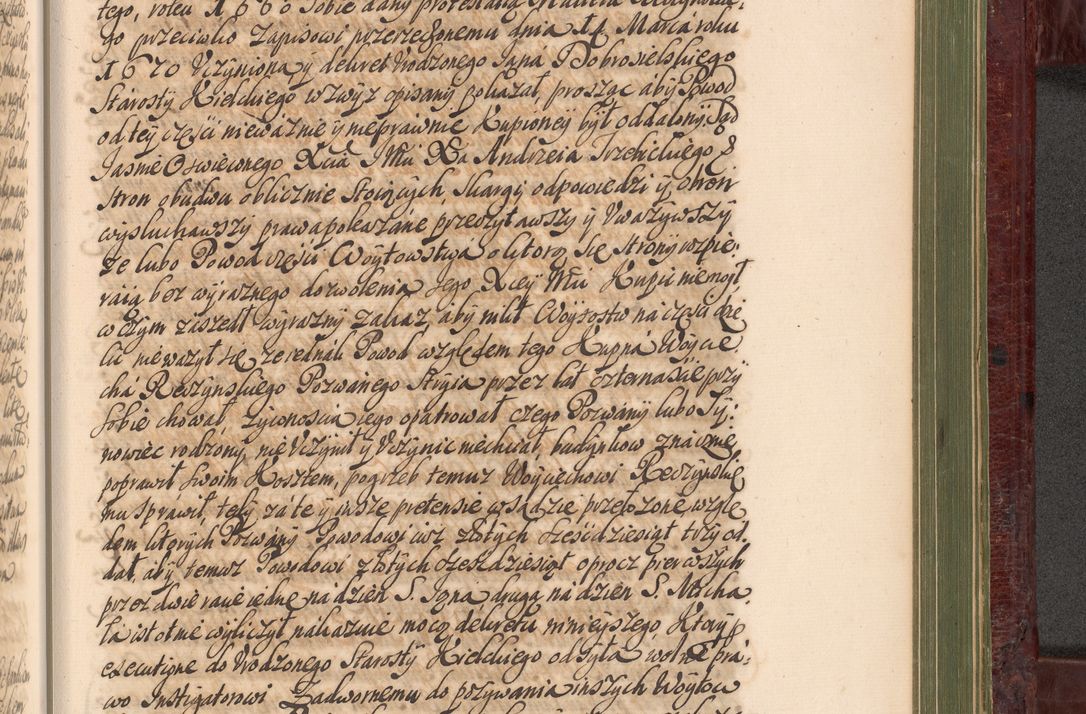 tego, roku 1660 sobie dany protestacyą
go przeciwko Zapisowi przerzeczonemu dnia 14 Marca roku
1670 Vczynioną y dekret Vrodzonego Jana Dobrosielskiego
Starosty Kielckiego wzwyż opisany pokazał, prosząc aby Powod
od tey części nieważnie y nieprawnie Kupioney był oddalony, Sąd
Jaśnie Oświeconego Xcia JMci Xa Andrzeia Trzebickiego z
stron obudwu oblicznie stoiących, skargi, odpowiedzi y obron
wysłuchawszy prawa pokazane przeczytawszy y Vważywszy
że lubo Powod części Woytowstwa o ktorą się strony rozpie:
raią bez wyraznego dozwolenia Jego Xcey Mci Kupić niemogł,
w czym zaszedł wyrazny zakaz, aby nikt Woytostw na części dzie
lić nieważył się, ze iednak Powod względem tego Kupna Woycie
cha Reczynskiego Pozwanego Stryia przez lat czternaście przy
sobie chował, żywnoscią iego opatrował czego Pozwany lubo Sy:
nowiec rodzony, nie Vczynił y Vczynic niechciał, budynkow znacznie
poprawił swoim Kosztem, pogrzeb temuz Woyciechowi Reczynskie
mu sprawił, tedy za te y insze pretensie w sądzie przełożone wzglę
dem ktorych Pozwany Powodowi iusz złotych sześćdziesiąt trzy od
dał, aby temusz Powodowi złotych sześćdziesiąt oprocz pierwszych
przez dwie racie iedne na dzien S. Jana drugą na dzien S. Micha
ła istotnie wyliczył nakazuie mocą dekretu ninieyszego, Ktory p
executiąe do Vrodzonego Starosty Kielckiego odsyła wolne pra:
wo Instigatorowi Zadwornemu do pozywania inszych Woytow